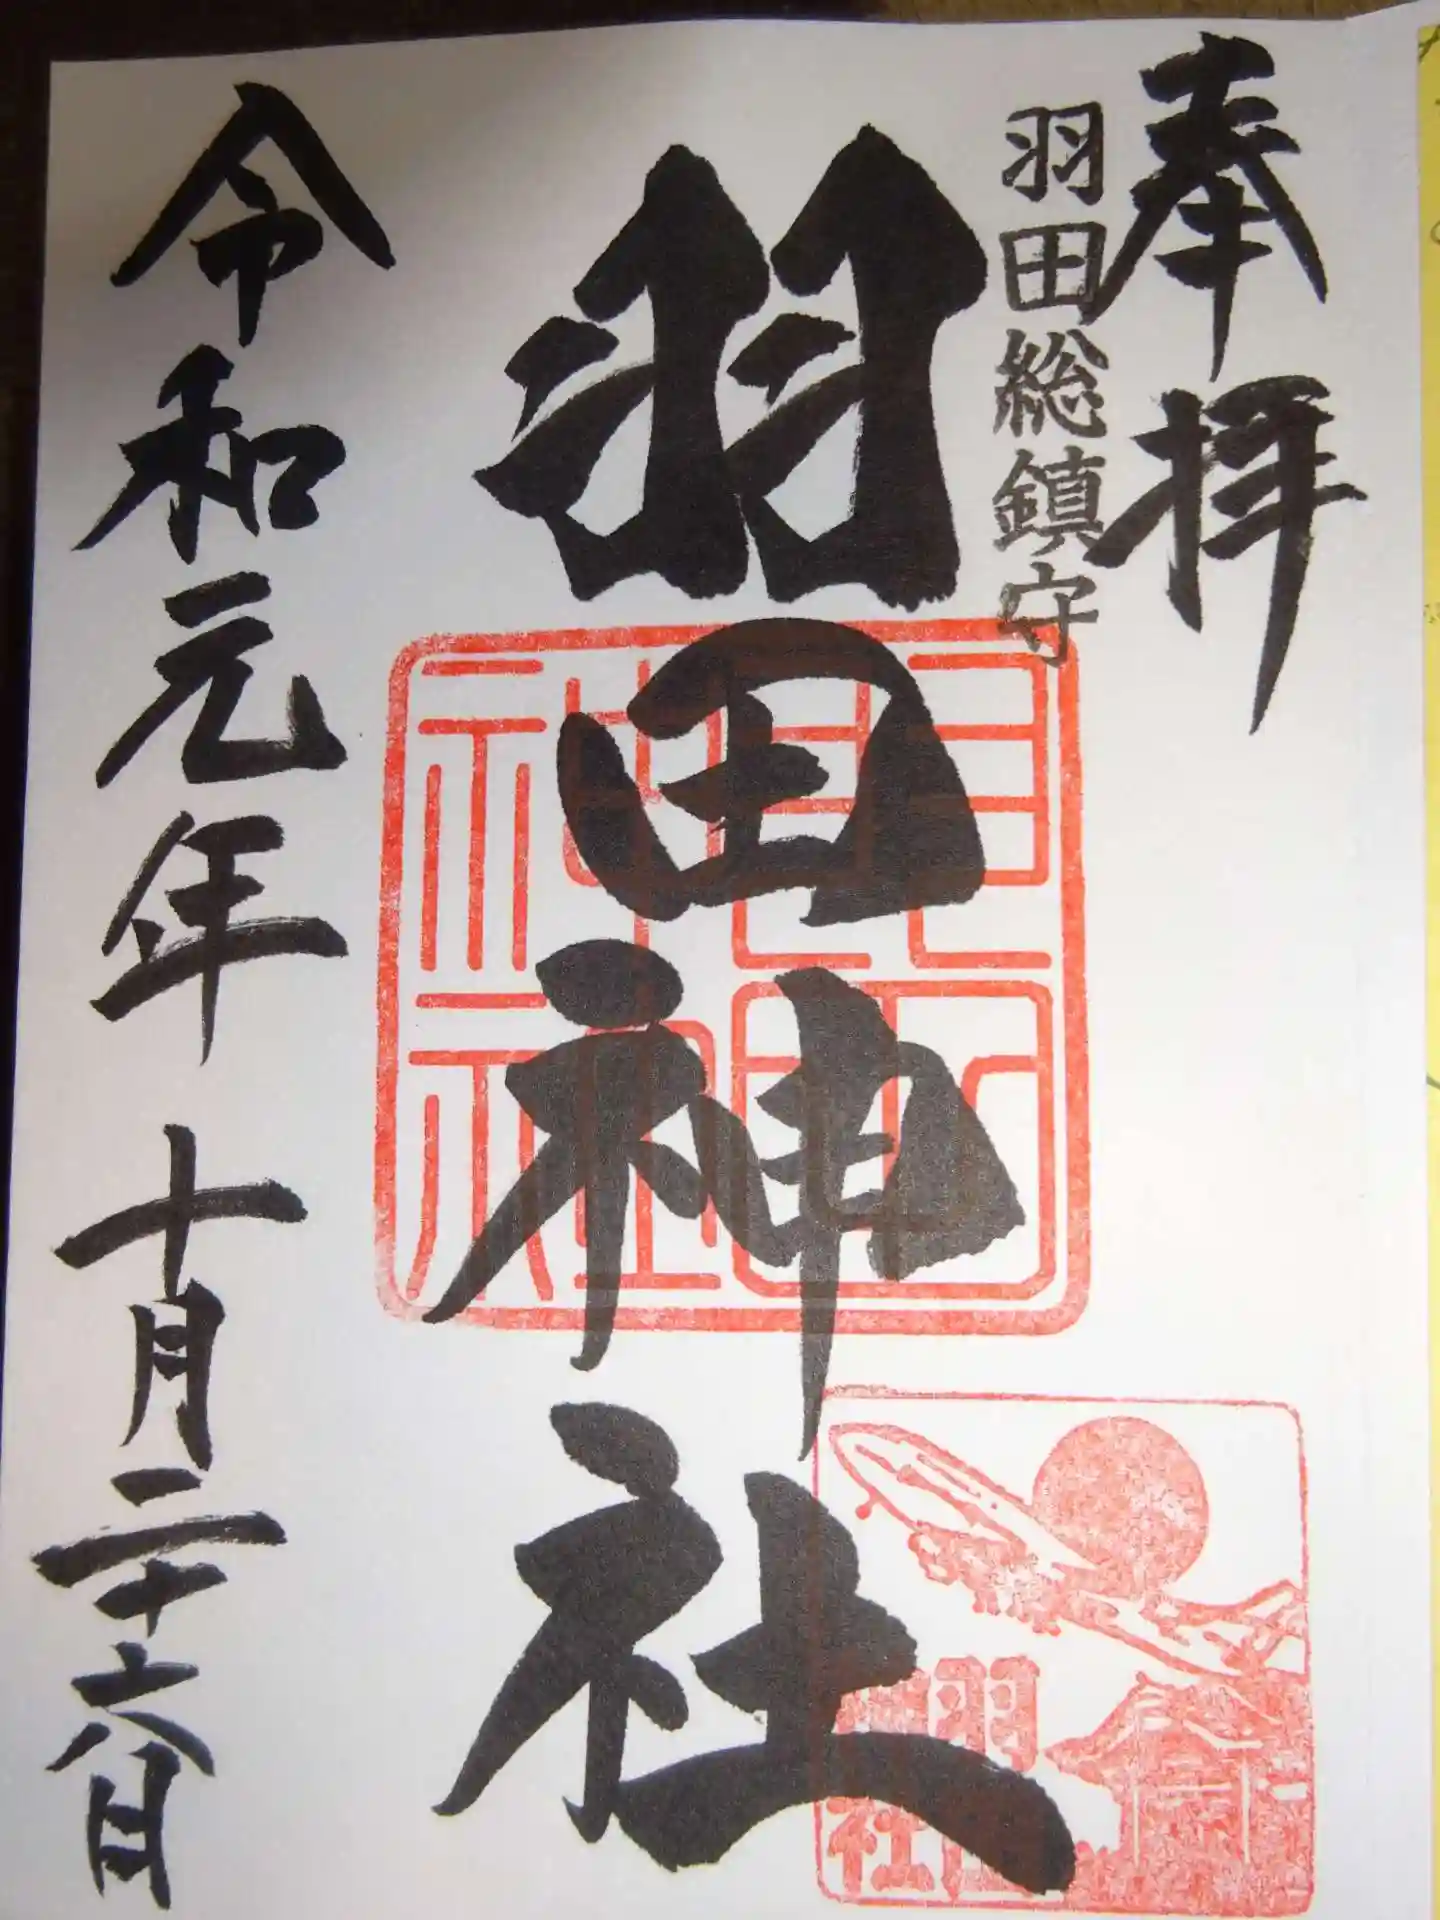 奉拝
羽田総鎮守
羽田神社
令和元年 十月二十六日
羽田神社
羽田神社